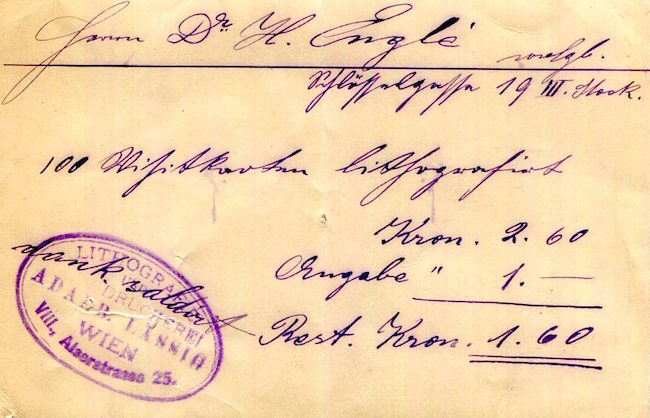 Herrn Dr. H. Englé
Schlösselgasse 19 III. Stock.
100 Visitkarten lithografirt
Kron. 2.60
Angabe " 1.—
Rest. Kron. 1.60
dank. saldirt
LITHOGRAFIE
DRUCKEREI
LÄSSIG
WIEN
VIII., Alserstrasse 25.